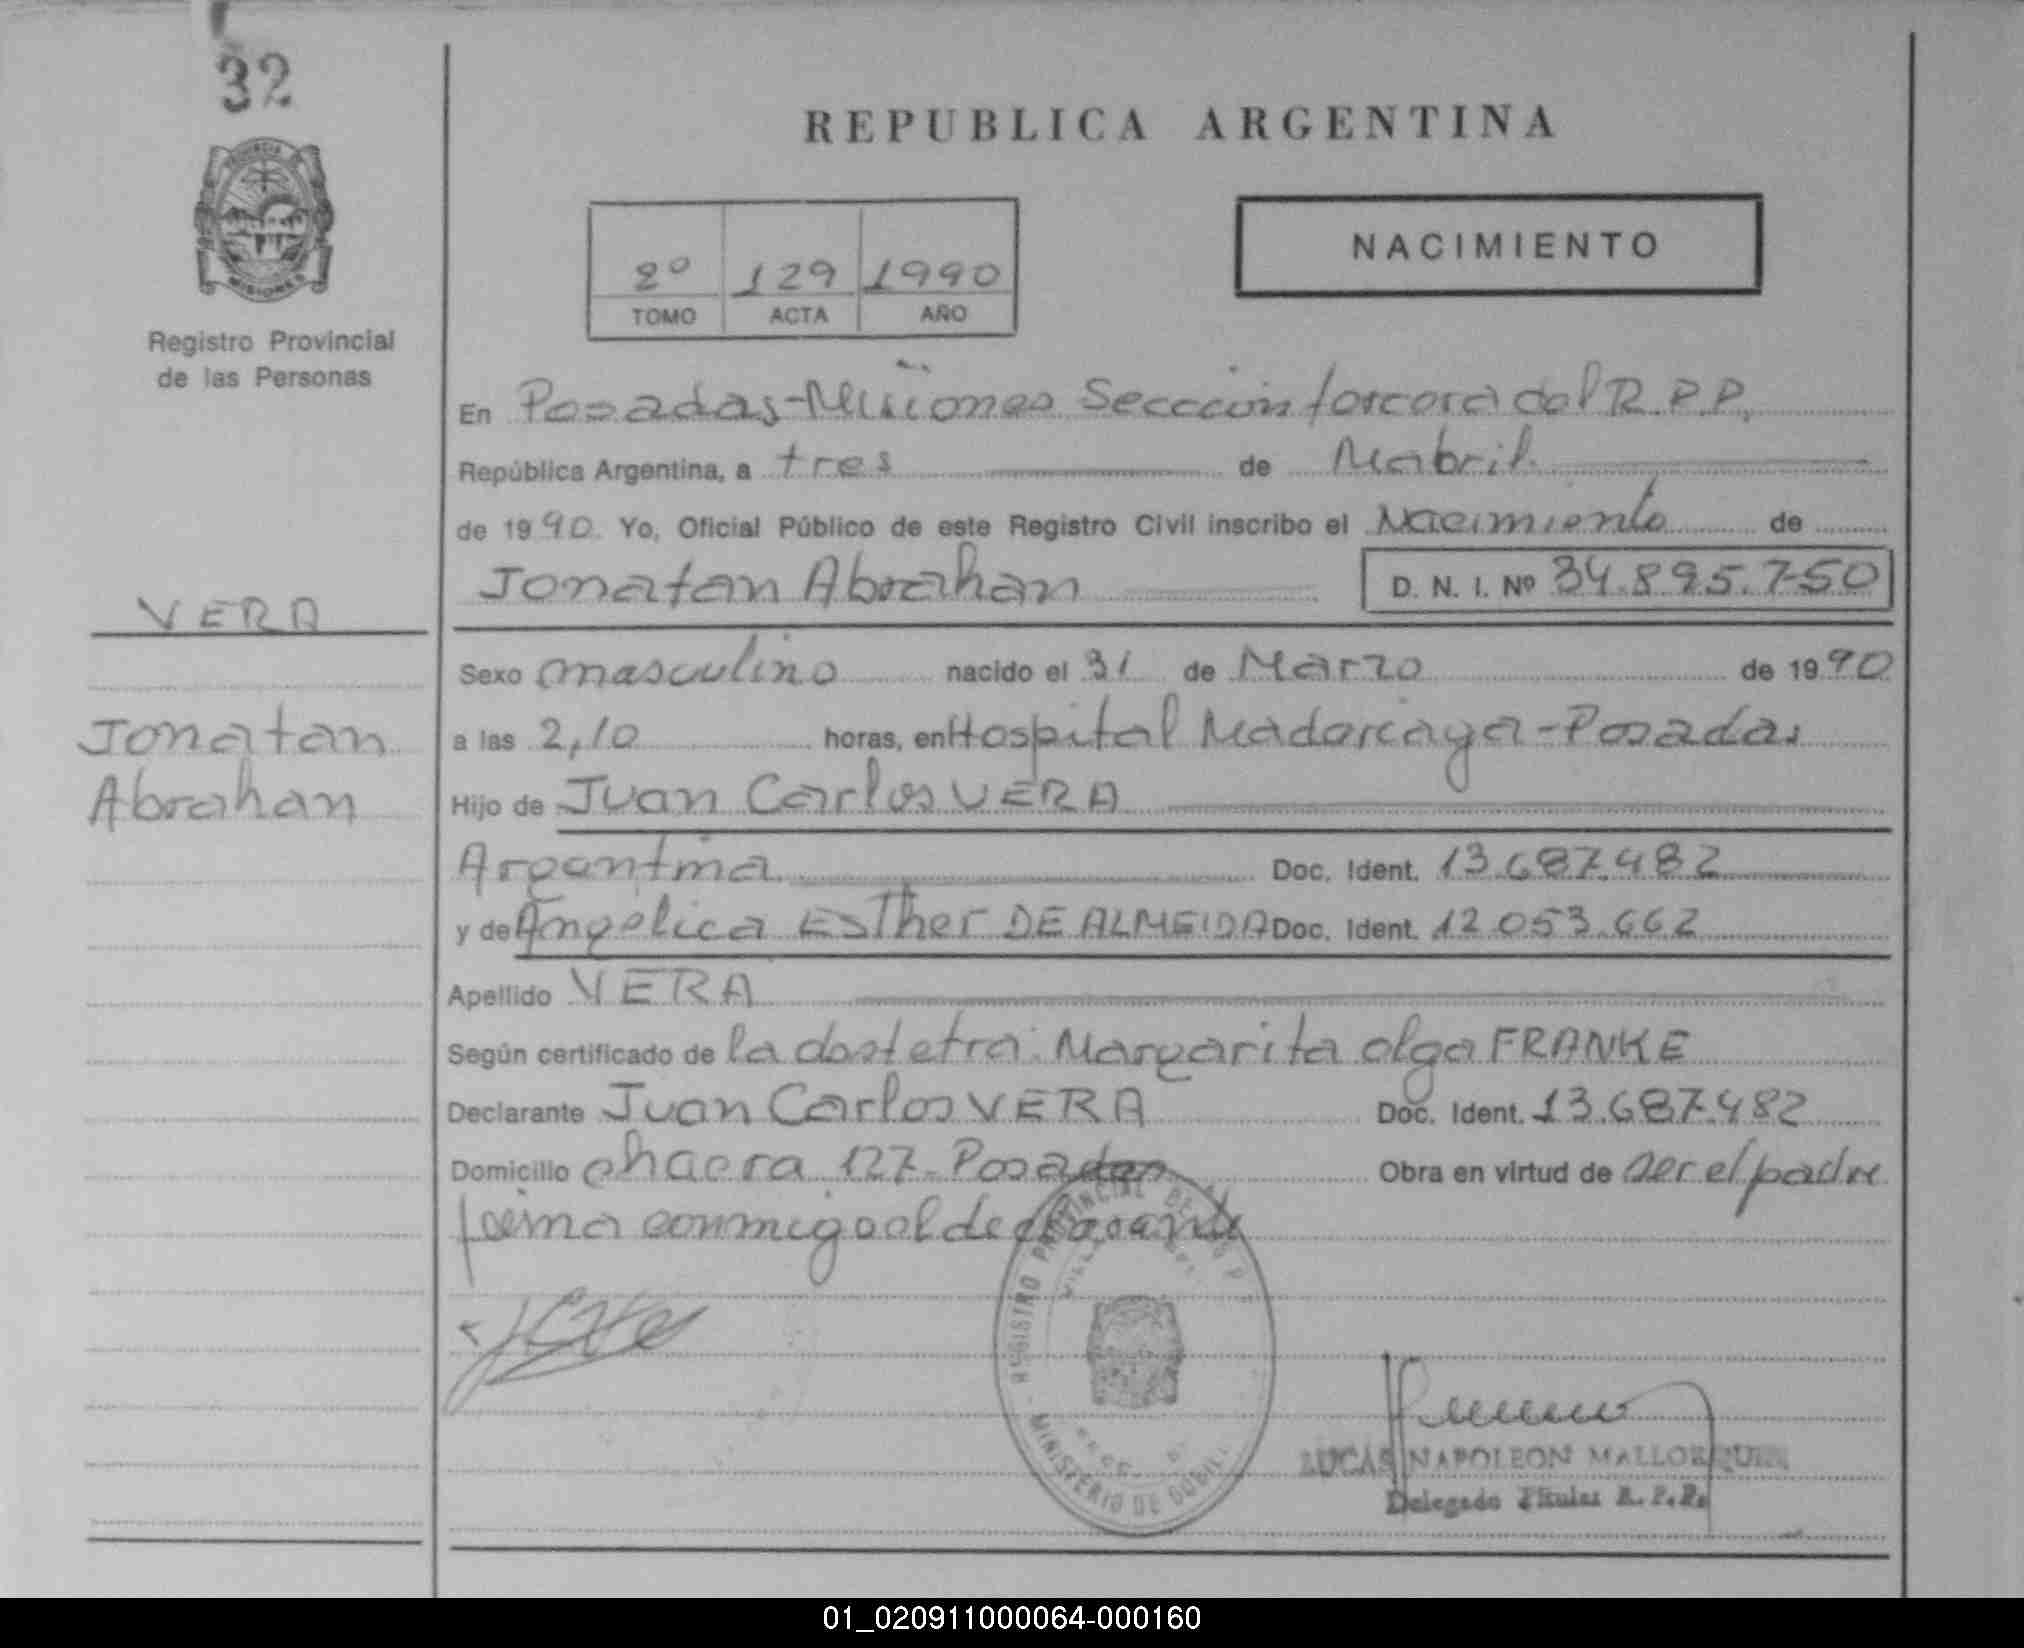 32
PROVINCIA DE
MISIONES
Registro Provincial
de las Personas
REPUBLICA ARGENTINA
NACIMIENTO
2º 129 1990
TOMO ACTA AÑO
En Posadas-Misiones Seccion tercera del R.P.P.
República Argentina, a tres de Mabril
de 1990. Yo, Oficial Público de este Registro Civil inscribo el Nacimiento de
Jonatan Abrahan D. N. I. Nº 34.895.750
VERA
Jonatan
Abrahan
Sexo masculino nacido el 31 de Marzo de 1990
a las 2,10 horas, en Hospital Madariaga-Posadas
Hijo de Juan Carlos VERA
Argentina Doc. Ident. 13.687.482
y de Angélica Esther DE ALMEIDA Doc. Ident. 12.053.662
Apellido VERA
Según certificado de la dostetra: Margarita olga FRANKE
Declarante Juan Carlos VERA Doc. Ident. 13.687.482
Domicilio chacra 127-Posadas Obra en virtud de ser el padre
firma conmigo el declarante
REGISTRO PROVINCIAL DE
MINISTERIO DE GOBIE
LUCAS NAPOLEON MALLORQUIN
Delegado Titular R.P.P.
01_020911000064-000160